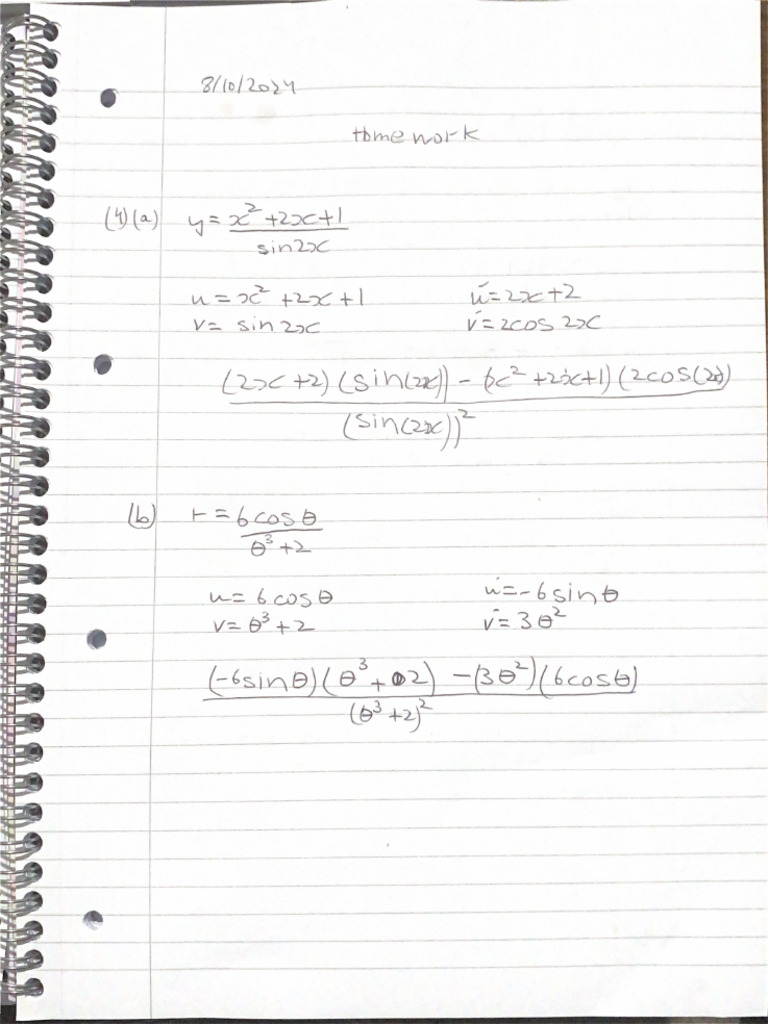 8/10/2024
Homework
(4)(a) y = x² + 2x + 1
sin2x
u = x² + 2x + 1 u' = 2x + 2
v = sin 2x v' = 2cos 2x
(2x + 2)(sin(2x)) - (x² + 2x + 1)(2cos(2x))
(sin(2x))²
(b) r = 6cosθ
θ³ + 2
u = 6cosθ u' = -6sinθ
v = θ³ + 2 v' = 3θ²
(-6sinθ)(θ³ + 2) - (3θ²)(6cosθ)
(θ³ + 2)²